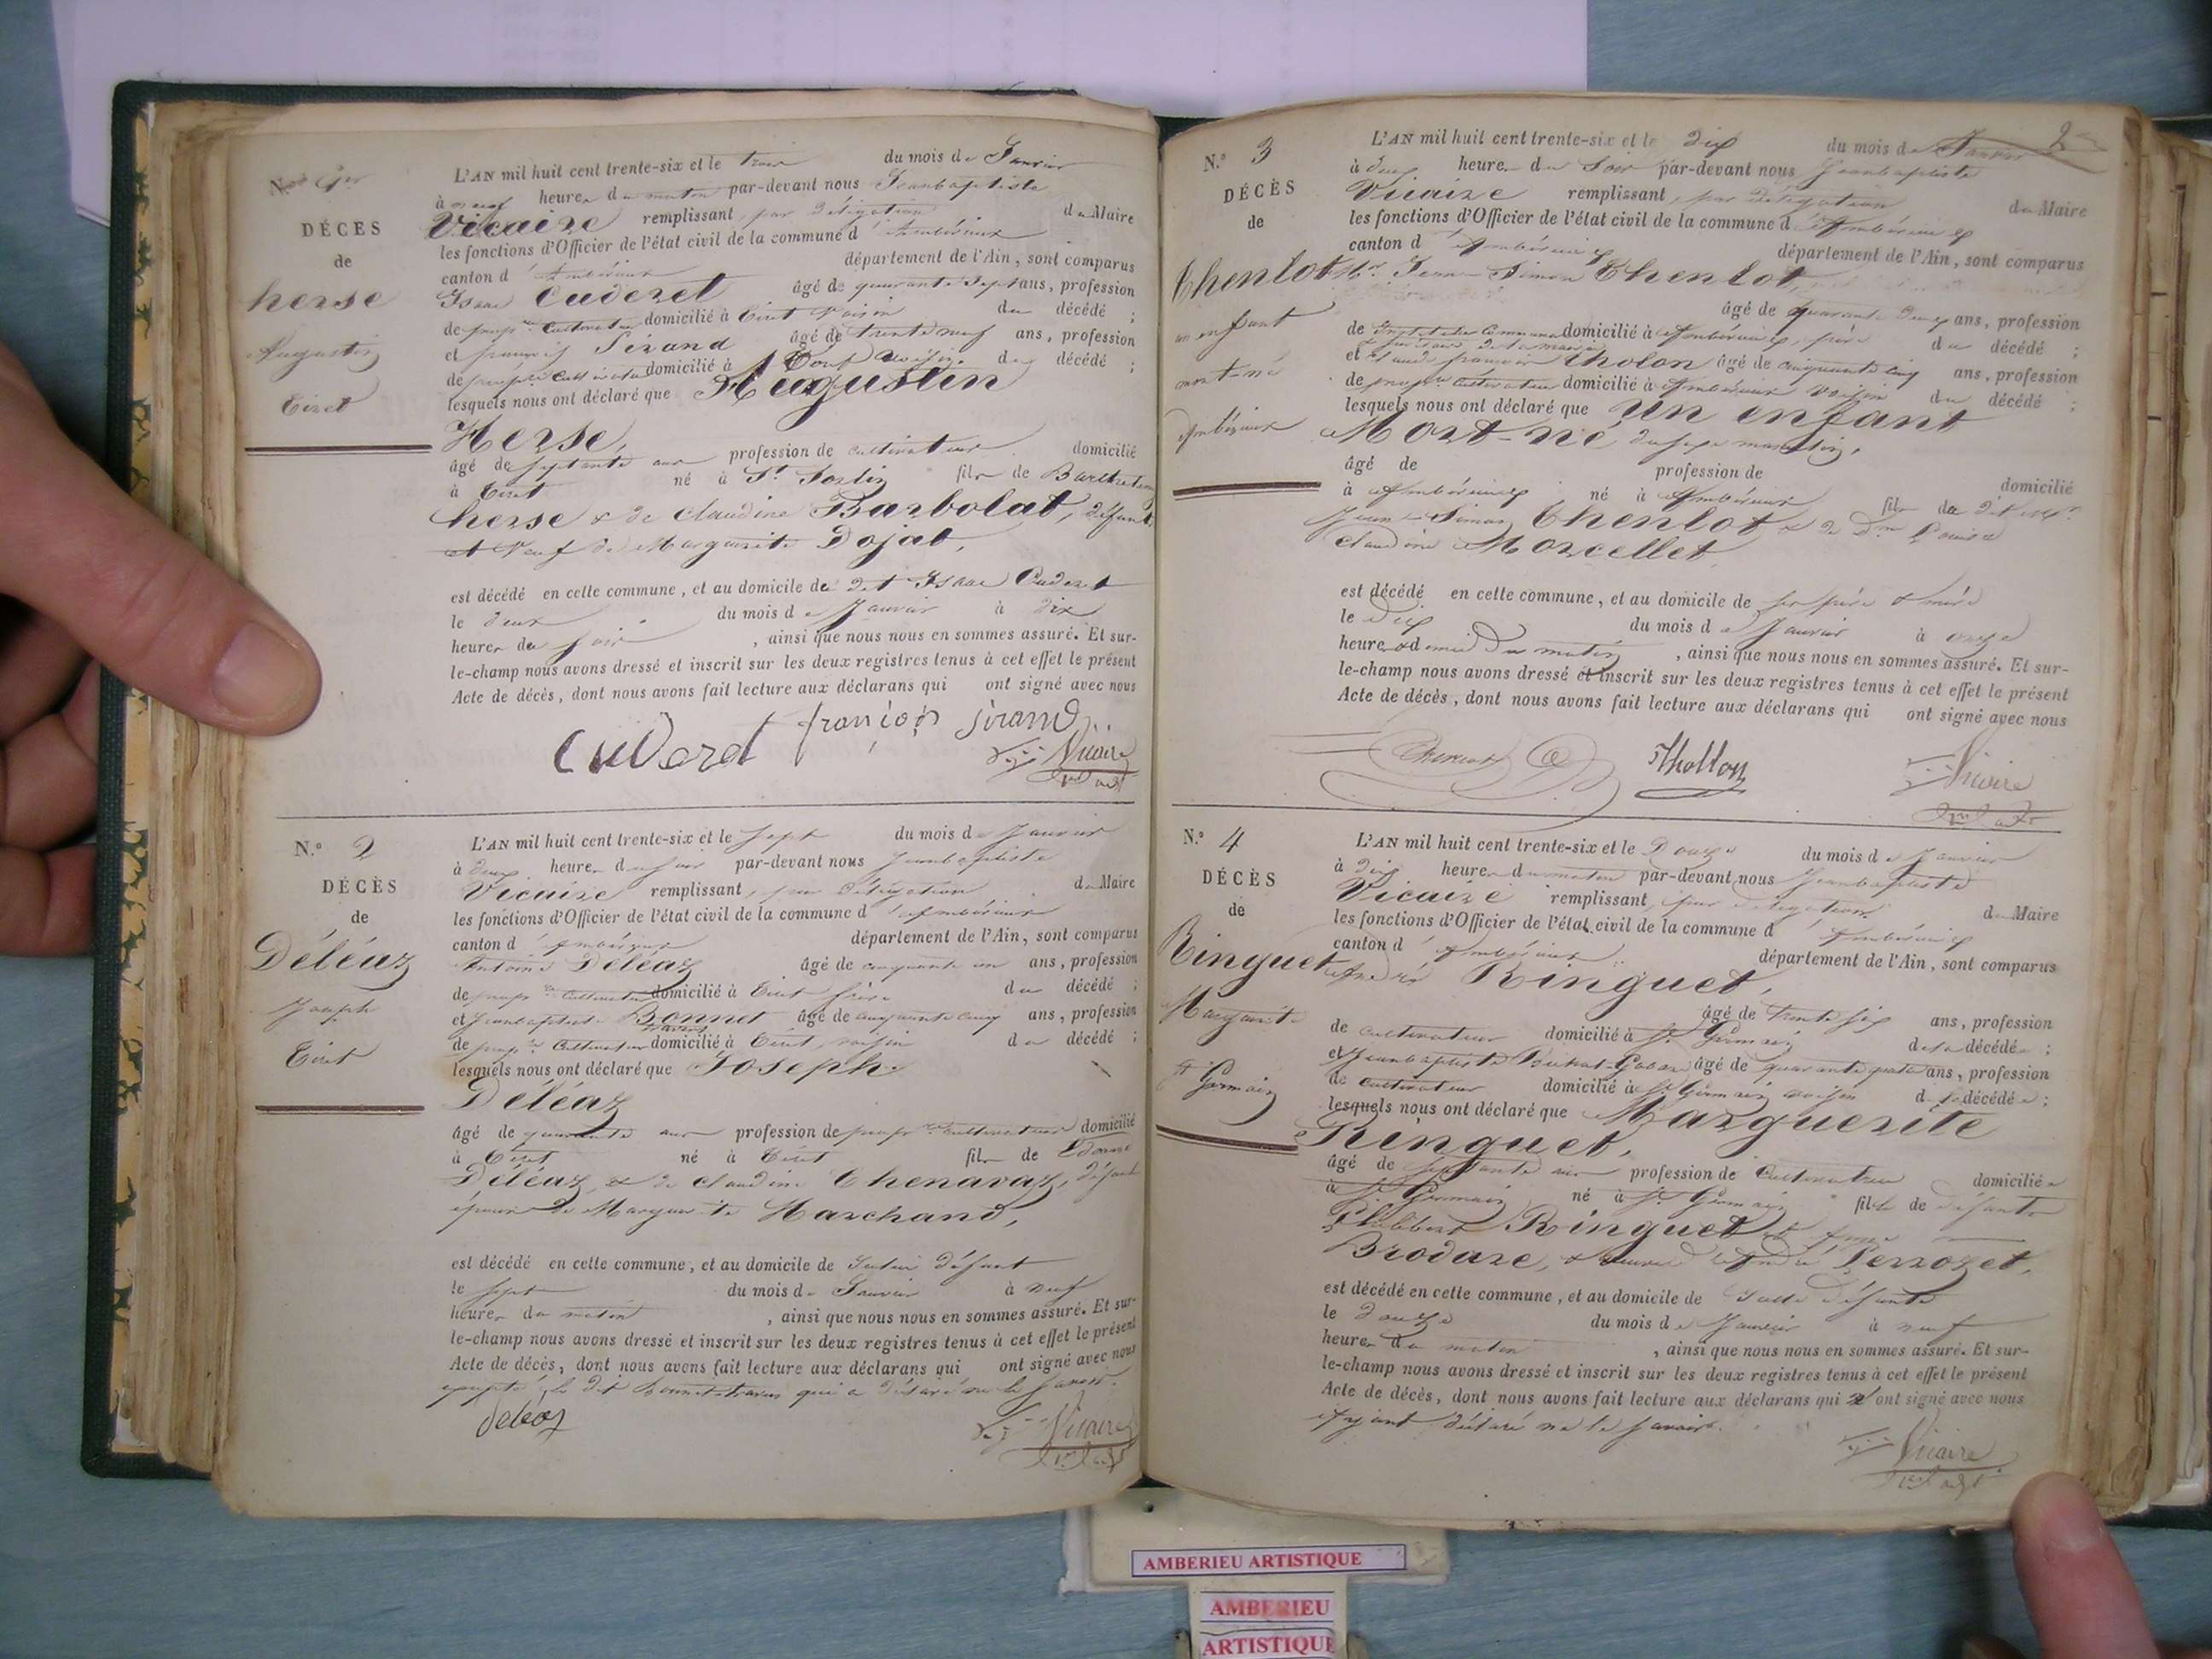 N.º 1er
DÉCES
de
herse
Augustin
Tiret
L'AN mil huit cent trente-six et le trois du mois de Janvier
à neuf heures du matin par-devant nous Jeanbaptiste
Vicaire remplissant, par délégation du Maire
les fonctions d'Officier de l'état civil de la commune d'Ambérieux
canton d'Ambérieux département de l'Ain, sont comparus
Isaac Cuderet âgé de quarante Sept ans, profession
de propre Cultivateur domicilié à Tiret Voisin du décédé ;
et françois Sirand âgé de trente neuf ans, profession
de propre Cultivateur domicilié à Tiret Voisin du décédé ;
lesquels nous ont déclaré que Augustin
Herse,
âgé de septante ans profession de cultivateur domicilié
à Tiret né à St Sorlin fils de
herse & de Claudine Barbolat, défunts
et Veuf de Marguerite Dojat,
est décédé en cette commune, et au domicile du dit Isaac Cuderet
le deux du mois de Janvier à dix
heures du soir , ainsi que nous nous en sommes assuré. Et sur-
le-champ nous avons dressé et inscrit sur les deux registres tenus à cet effet le présent
Acte de décès, dont nous avons fait lecture aux déclarans qui ont signé avec nous
françois sirand
Vicaire
N.º 2
DÉCÈS
de
Déléaz
Joseph
Tiret
L'AN mil huit cent trente-six et le sept du mois de Janvier
à deux heures du soir par-devant nous Jeanbaptiste
Vicaire remplissant, par délégation du Maire
les fonctions d'Officier de l'état civil de la commune d'Ambérieux
canton d'Ambérieux département de l'Ain, sont comparus
Antoine Déléaz âgé de cinquante un ans, profession
de propre Cultivateur domicilié à Tiret frère du décédé ;
et Jeanbaptiste Bonnet âgé de cinquante cinq ans, profession
de propre Cultivateur domicilié à Tiret, voisin du décédé ;
lesquels nous ont déclaré que Joseph
Déléaz
âgé de quarante ans profession de propre cultivateur domicilié
à Tiret né à Tiret fils de
Déléaz, & de Claudine Chenavaz, défunts
époux de Marguerite Marchand,
est décédé en cette commune, et au domicile de défunt
le sept du mois de Janvier à neuf
heures du matin , ainsi que nous nous en sommes assuré. Et sur-
le-champ nous avons dressé et inscrit sur les deux registres tenus à cet effet le présent
Acte de décès, dont nous avons fait lecture aux déclarans qui ont signé avec nous
excepté le dit bonnet-travers qui a déclaré ne le savoir.
deléaz
Vicaire
2
N.º 3
DÉCÈS
de
Chenlot
un enfant
mort-né
Ambérieux
L'AN mil huit cent trente-six et le dix du mois de Janvier
à deux heures du Soir par-devant nous Jeanbaptiste
Vicaire remplissant, par délégation du Maire
les fonctions d'Officier de l'état civil de la commune d'Ambérieux
canton d'Ambérieux département de l'Ain, sont comparus
Mr Jean-Simon Chenlot,
âgé de quarante deux ans, profession
de Instituteur Communal domicilié à Ambérieux, père du décédé ;
et Claude françois tholon âgé de cinquante cinq ans, profession
de propre cultivateur domicilié à Ambérieux voisin du décédé ;
lesquels nous ont déclaré que un enfant
Mort-né du sexe masculin,
âgé de profession de domicilié
à Ambérieux né à Ambérieux fils du dit Mr
Jean-Simon Chenlot & de Dme Louise
Claudine Morcellet,
est décédé en cette commune, et au domicile de ses père & mère
le dix du mois de Janvier à onze
heures & demie du matin , ainsi que nous nous en sommes assuré. Et sur-
le-champ nous avons dressé et inscrit sur les deux registres tenus à cet effet le présent
Acte de décès, dont nous avons fait lecture aux déclarans qui ont signé avec nous
Thollon
Vicaire
N.º 4
DÉCÈS
de
Ringuet
Marguerite
St Germain
L'AN mil huit cent trente-six et le Douze du mois de Janvier
à dix heures du matin par-devant nous Jeanbaptiste
Vicaire remplissant, par délégation du Maire
les fonctions d'Officier de l'état civil de la commune d'Ambérieux
canton d'Ambérieux département de l'Ain, sont comparus
André Ringuet,
âgé de trente six ans, profession
de cultivateur domicilié à St Germain de la décédée ;
et Jeanbaptiste âgé de quarante quatre ans, profession
de cultivateur domicilié à St Germain voisin de la décédée ;
lesquels nous ont déclaré que Marguerite
Ringuet,
âgé de septante ans profession de Cultivatrice domiciliée
à St Germain né à St Germain fille de défunts
Philibert Ringuet &
Brodure, & veuve d'André Perrozet,
est décédé en cette commune, et au domicile de défunte
le douze du mois de Janvier à neuf
heures du matin , ainsi que nous nous en sommes assuré. Et sur-
le-champ nous avons dressé et inscrit sur les deux registres tenus à cet effet le présent
Acte de décès, dont nous avons fait lecture aux déclarans qui n'ont signé avec nous
ayant déclaré ne le savoir.
Vicaire
AMBERIEU ARTISTIQUE
AMBERIEU
ARTISTIQUE